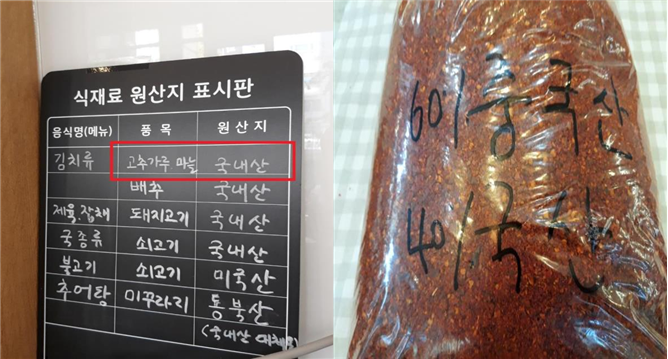 식재료 원산지 표시판
음식명(메뉴) 품목 원산지
김치류 고추가루 마늘 국내산
배추 국내산
제육,잡채 돼지고기 국내산
국종류 쇠고기 국내산
불고기 쇠고기 미국산
추어탕 미꾸라지
(국내산
60% 중국산
40% 국산